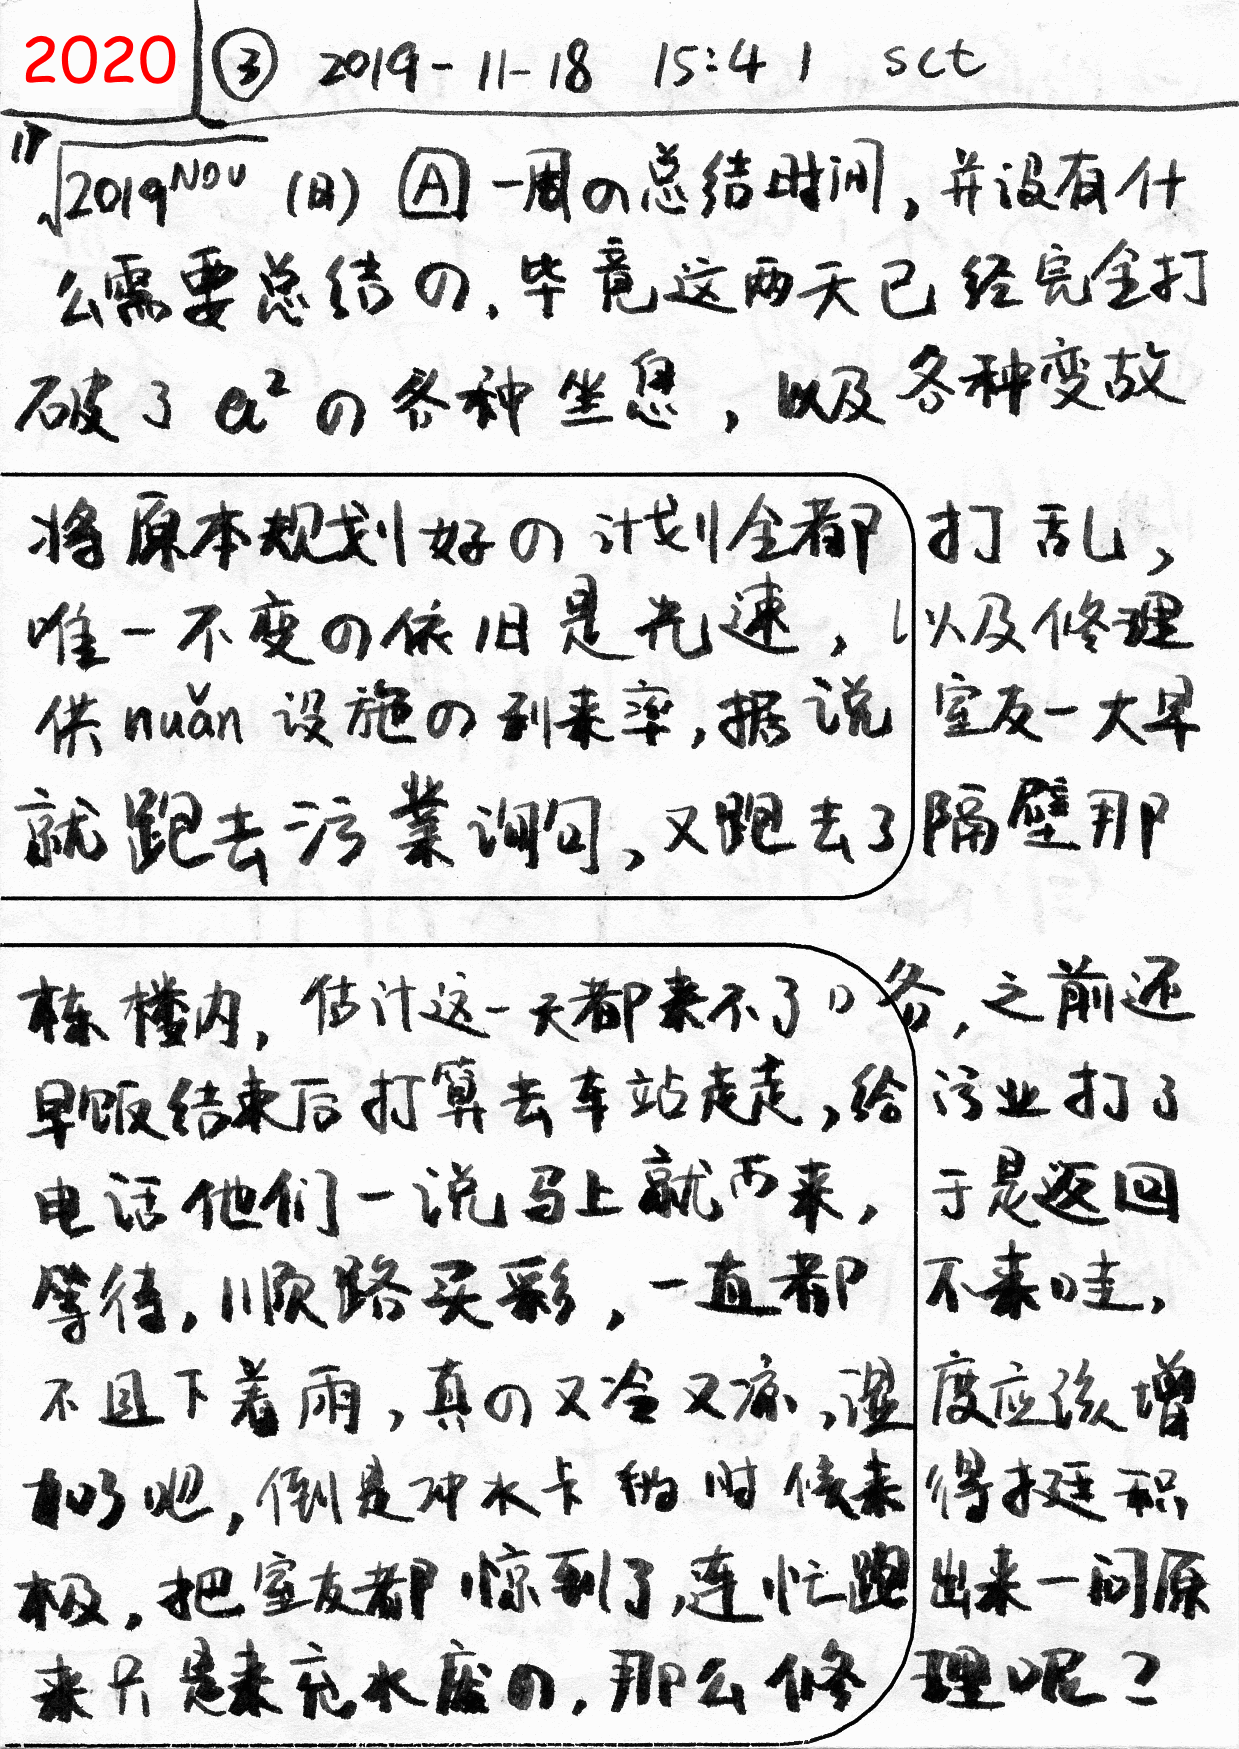 2020 ③ 2019-11-18 15:41 sct
17 2019NOV (日) A 一周の总结时间,并没有什
么需要总结の,毕竟这两天已经完全打
破了a²の各种坐息,以及各种变故
将原本规划好の计划全都打乱,
唯一不变の依旧是光速,以及修理
供nuǎn设施の到来率,据说室友一大早
就跑去污業询问,又跑去了隔壁那
栋楼内,估计这一天都来不了咯,之前还
早饭结束后打算去车站走走,给污业打了
电话他们一说马上就而来,于是返回
等待,顺路买彩,一直都不来哇,
不且下着雨,真の又冷又凉,湿度应该增
加了吧,倒是冲水卡的时候来得挺积
极,把室友都惊到了,连忙跑出来一问原
来只是来充水废の,那么修理呢?